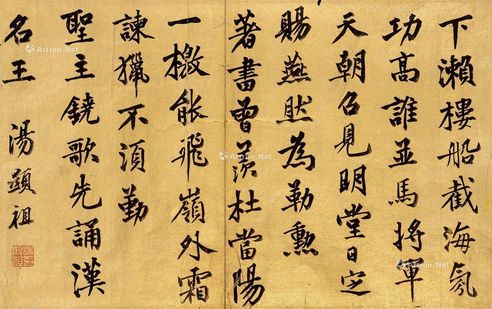 下瀨樓船截海氛
功高誰並馬將軍
天朝召見明堂日定
賜燕然為勒勲
著書曽羨杜當陽
一檄能飛嶺外霜
諫獵不須勤
聖主鐃歌先誦漢
名王
湯顯祖
Artron.Net
Artron.Net
Artron.Net
Artron.Net
Artron.Net